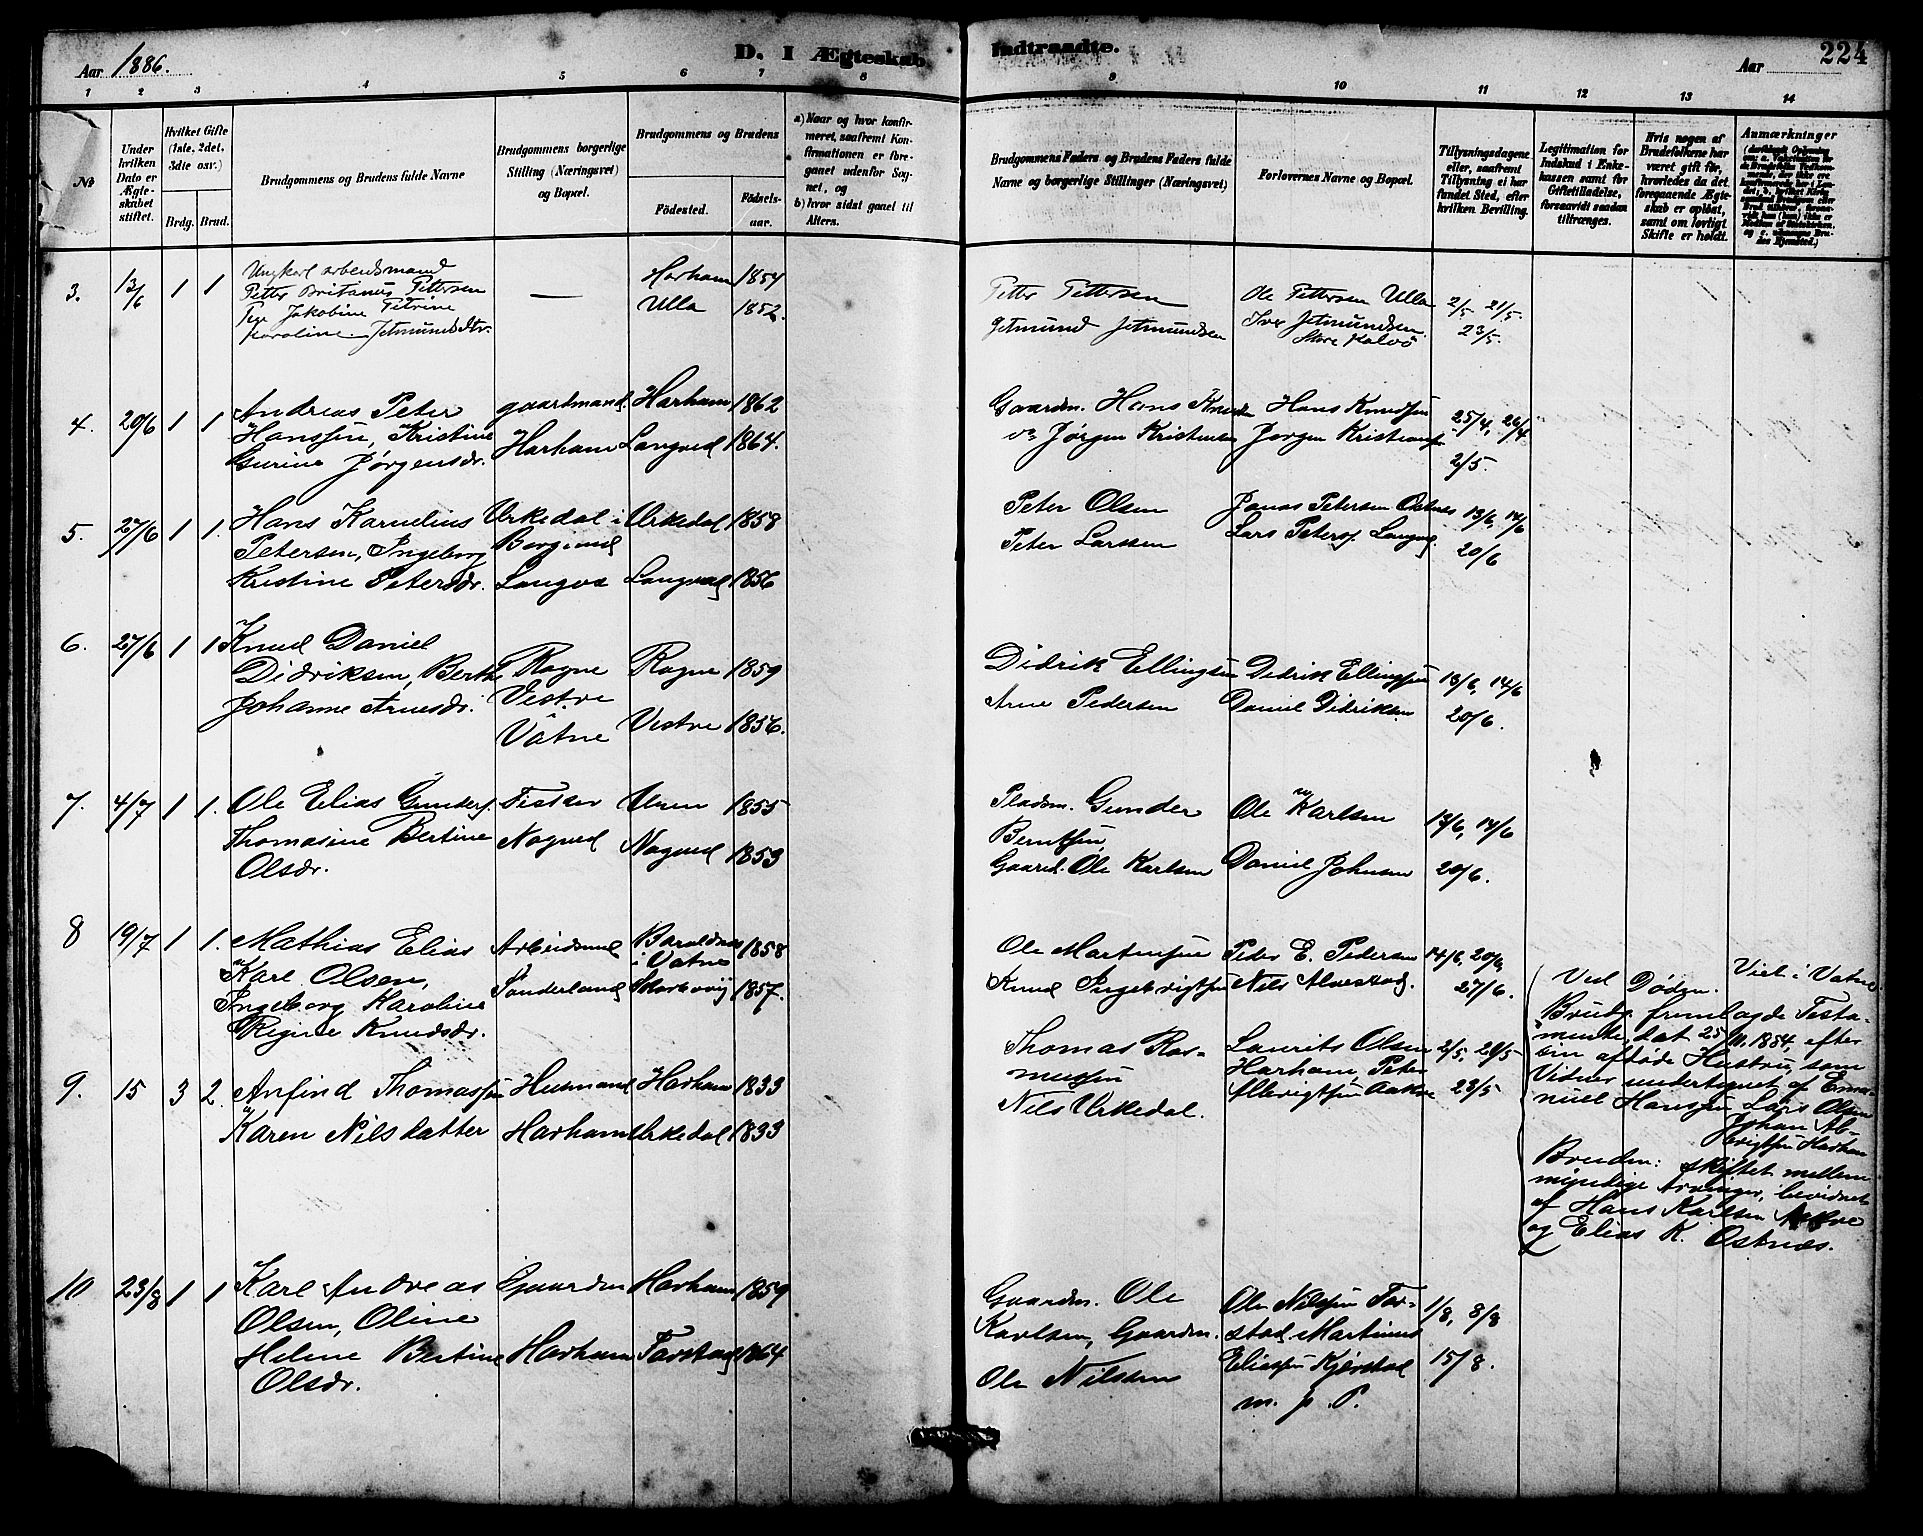 Aar 1886.
D. I Ægteskab
Indtraadte.
Aar
224
1 2 3 4 5 6 7 8 9 10 11 12 13 14
No
Under hvilken Dato er Ægteskabet stiftet.
Hvilket Gifte (1ste, 2det, 3die osv.)
Brdg. Brud.
Brudgommens og Brudens fulde Navne
Brudgommens borgerlige Stilling (Næringsvei) og Bopæl.
Brudgommens og Brudens
Fødested.
Fødselsaar.
a) Naar og hvor konfirmeret, saafremt Konfirmationen er foreganet udenfor Sognet, og
b) hvor sidst gaaet til Alters.
Brudgommens Faders og Brudens Faders fulde Navne og borgerlige Stillinger (Næringsvei)
Forlovernes Navne og Bopæl.
Tillysningsdagene eller, saafremt Tillysning ei har fundet Sted, efter hvilken Bevilling.
Legitimation for Indskud i Enkekassen samt for Giftetilladelse, forsaavidt saadan tiltrænges.
Hvis nogen af Brudefolkene har været gift før, hvorledes da det foregaaende Ægteskab er opløst, samt om lovligt Skifte er holdt.
Anmærkninger
3. 13/6 1 1
Ungkarl arbeidsmand
Petter Pettersen
Pige Jakobine Petrine
Karoline Jetmundsdtr.
—
Harham 1854
Ulla 1852.
Petter Pettersen
Jetmund Jetmundsen
Ole Pettersen Ulla
Iver Jetmundsen
Store Kalvø
2/5 21/5.
23/5.
4. 20/6 1 1
Andreas Peter
Hanssen, Kristine
Gurine Jørgensdr.
gaardmand.
Harham
Harham 1862
Longved 1864.
Gaardm. Hans Knudsen
Jørgen Kristensen
Hans Knudsen
Jørgen Kristensen
25/4, 26/4.
2/5.
5. 27/6 1 1.
Hans Kornelius
Petersen, Ingeborg
Kristine Petersdr.
Urkedal i
Borgund
Longva
Urkedal 1858
Longva 1856
Peter Olsen
Peter Larssen
Jonas Petersen Østnes
Lars Peters. Longva
13/6, 14/6
20/6
6. 27/6 1 1
Knud Daniel
Didriksen, Berthe
Johanne Arnesdr.
Rogne
Vestre
Vatne
Rogne 1859
Vestre 1856.
Didrik Ellingsen
Arne Pedersen
Didrik Ellingsen
Daniel Didriksen
13/6, 14/6
20/6.
7. 4/7 1 1.
Ole Elias Gunders.
Thomasine Bertine
Olsdr.
Fisker
Nogved
Uren 1855
Nogved 1853
Pladsm. Gunder
Berntsen,
Gaard. Ole Karlsen
Ole Karlsen
Daniel Johnsen
13/6, 14/6
20/6.
8 19/7 1 1.
Mathias Elias
Karl Olsen,
Ingeborg Karoline
Regine Knudsdr.
Arbeidsmd
Sønderland
Baraldsnes
i Vatne 1858
1857.
Ole Martinsen
Knud Ingebrigtsen
Peder E. Pedersen
Nils Alvestad.
14/6, 20/6,
27/6.
Viet i Vatne.
9. 15 3 2.
Anfind Thomassen
Karen Nilsdatter
Husmand
Harham
Harham 1833
Urkedal 1833
Thomas Rasmussen
Nils Urkedal.
Laurits Olsen
Harham Peter
Albrigtsen Aakre
2/5, 21/5
23/5
Ved Døden.
Brudg. fremlagde Testamente, dat 25/11. 1854, efter
sin afdøde Hustru, som
Vidner undertegnet af Emanuel Hanssen, Lars Olsen
Johan Albrigtsen Harham
Bruden: skiftet mellem
myndige Arvinger, bevidnet
af Hans Karlsen Aakre
og Elias K. Østnes.
10 23/8 1 1
Karl Andreas
Olsen, Oline
Helene Bertine
Olsdr.
Gaardm
Harham
Harham 1859
Farstad 1864
Gaardm. Ole
Karlsen, Gaardm.
Ole Nilssen
Ole Nilssen Farstad. Martinus
Eliassen Kjerstad
m. p. P.
1/8, 8/8
15/8.